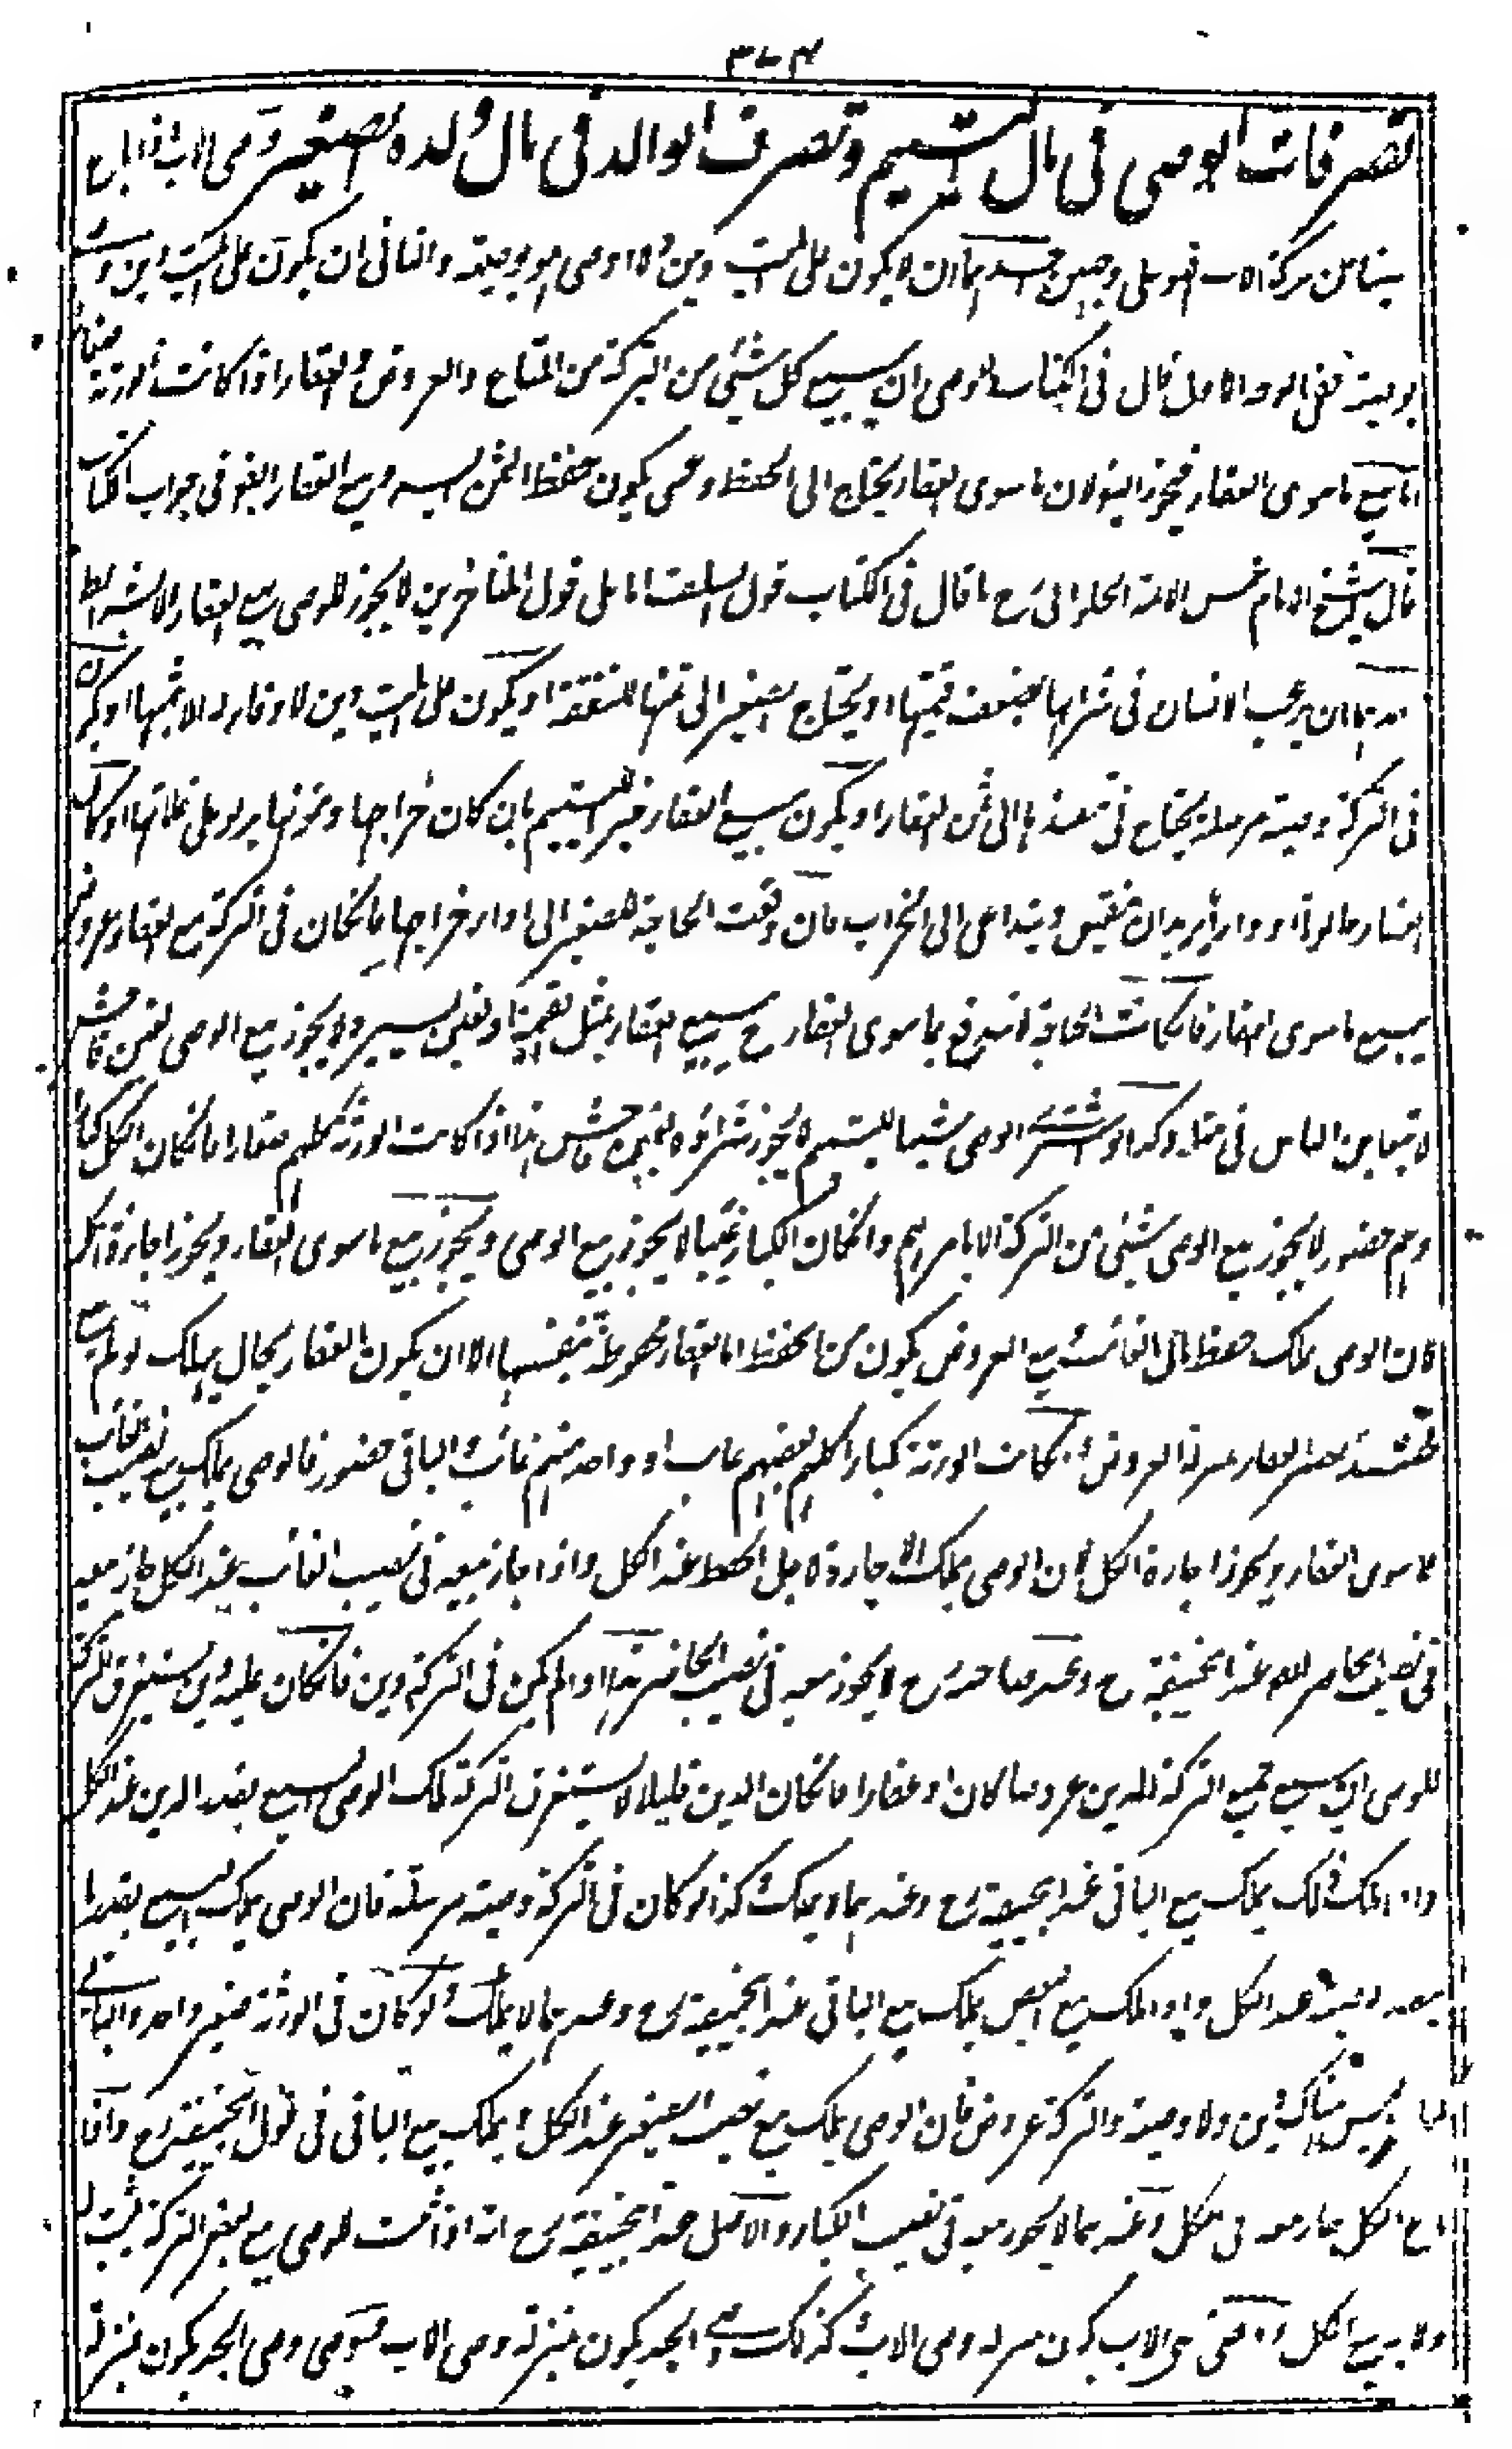 ٣٧٤
تصرفات الوصى فى مال اليتيم وتصرف الوالد فى مال ولده الصغير وصى الاب اذا باع
شيئا من تركة الاب فهو على وجهين احدهما ان لا يكون على الميت دين ولا اوصى هو بوصية والثانى ان يكون على الميت دين او
بوصية ففى الوجه الاول قال فى الكتاب للوصى ان يبيع كل شئ من التركة من المتاع والعروض والعقار اذا كانت الورثة صغارا
اما بيع ما سوى العقار فيجوز لان ما سوى العقار يحتاج الى الحفظ وعسى يكون حفظ الثمن ايسر وبيع العقار ايضا فى جواب الكتاب
قال الشيخ الامام شمس الائمة الحلوانى رح ما قال فى الكتاب قول السلف اما على قول المتأخرين لا يجوز للوصى بيع العقار الا بشرائط
ان يرغب الانسان فى شرائها بضعف قيمتها او يحتاج الصغير الى ثمنها للنفقة او يكون على الميت دين لا وفاء له الا بثمنها او يكون
فى التركة وصية مرسلة يحتاج فى تنفيذها الى ثمن العقار او يكون بيع العقار خيرا لليتيم بان كان خراجها ومؤنها يربو على غلاتها او كان
العقار حانوتا او دارا يريد ان ينقض ويتداعى الى الخراب فان وقعت الحاجة للصغير الى اداء خراجها فان كان فى التركة مع العقار عروض
يبيع ما سوى العقار فان كانت الحاجة لا تندفع بما سوى العقار ح يبيع العقار بمثل القيمة او بغبن يسير ولا يجوز بيع الوصى بغبن فاحش
لا يتغابن الناس فى مثله وكذا لو اشترى الوصى شيئا لليتيم لا يجوز شراؤه بغبن فاحش هذا اذا كانت الورثة كلهم صغارا فان كان الكل كبارا
وهم حضور لا يجوز بيع الوصى شيئا من التركة الا بامرهم وان كان الكبار غيبا لا يجوز بيع الوصى ويجوز بيع ما سوى العقار ويجوز اجارة الكل
لان الوصى يملك حفظ مال الغائب وبيع العروض يكون من الحفظ اما العقار محفوظة بنفسها الا ان يكون العقار بحال يهلك لو لم يبع
فحينئذ يصير العقار بمنزلة العروض وان كانت الورثة كبارا كلهم بعضهم غائب او واحد منهم غائب والباقى حضور فالوصى يملك بيع نصيب الغائب
ما سوى العقار ويجوز اجارة الكل لان الوصى يملك الاجارة لاجل الحفظ عند الكل واذا جاز بيعه فى نصيب الغائب عند الكل جاز بيعه
فى نصيب الحاضر ايضا عند ابى حنيفة رح وعند صاحبيه رح لا يجوز بيعه فى نصيب الحاضر هذا اذا لم يكن فى التركة دين فان كان عليه دين يستغرق التركة
للوصى ان يبيع جميع التركة للدين عروضا كان او عقارا فان كان الدين قليلا لا يستغرق التركة ملك الوصى البيع بقدر الدين عند الكل
واذا ملك ذلك يملك بيع الباقى عند ابى حنيفة رح وعندهما لا يملك وكذا لو كان فى التركة وصية مرسلة فان الوصى يملك البيع بقدر ما
ينفذ وصيته عند الكل واذا ملك بيع البعض يملك بيع الباقى عند ابى حنيفة رح وعندهما لا يملك ولو كان فى الورثة صغير واحد والباقى
كبار وليس هناك دين ولا وصية والتركة عروض فان الوصى يملك بيع نصيب الصغير عند الكل ويملك بيع الباقى فى قول ابى حنيفة رح واذا
باع الكل جاز بيعه فى الكل وعندهما لا يجوز بيعه فى نصيب الكبار والاصل عند ابى حنيفة رح انه اذا ثبت للوصى بيع بعض التركة يثبت له
ولاية بيع الكل وصى الاب يكون بمنزلة وصى الاب وكذلك وصى الجد يكون بمنزلة وصى الاب ووصى وصى الجد يكون بمنزلة